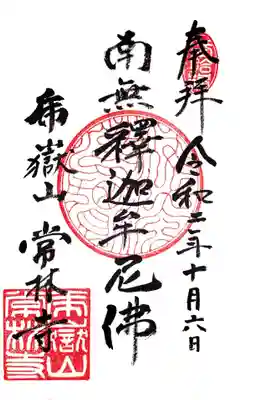 奉拝 令和二年十月六日
南無釋迦牟尼佛
布嶽山 常林寺
布嶽山
常林寺